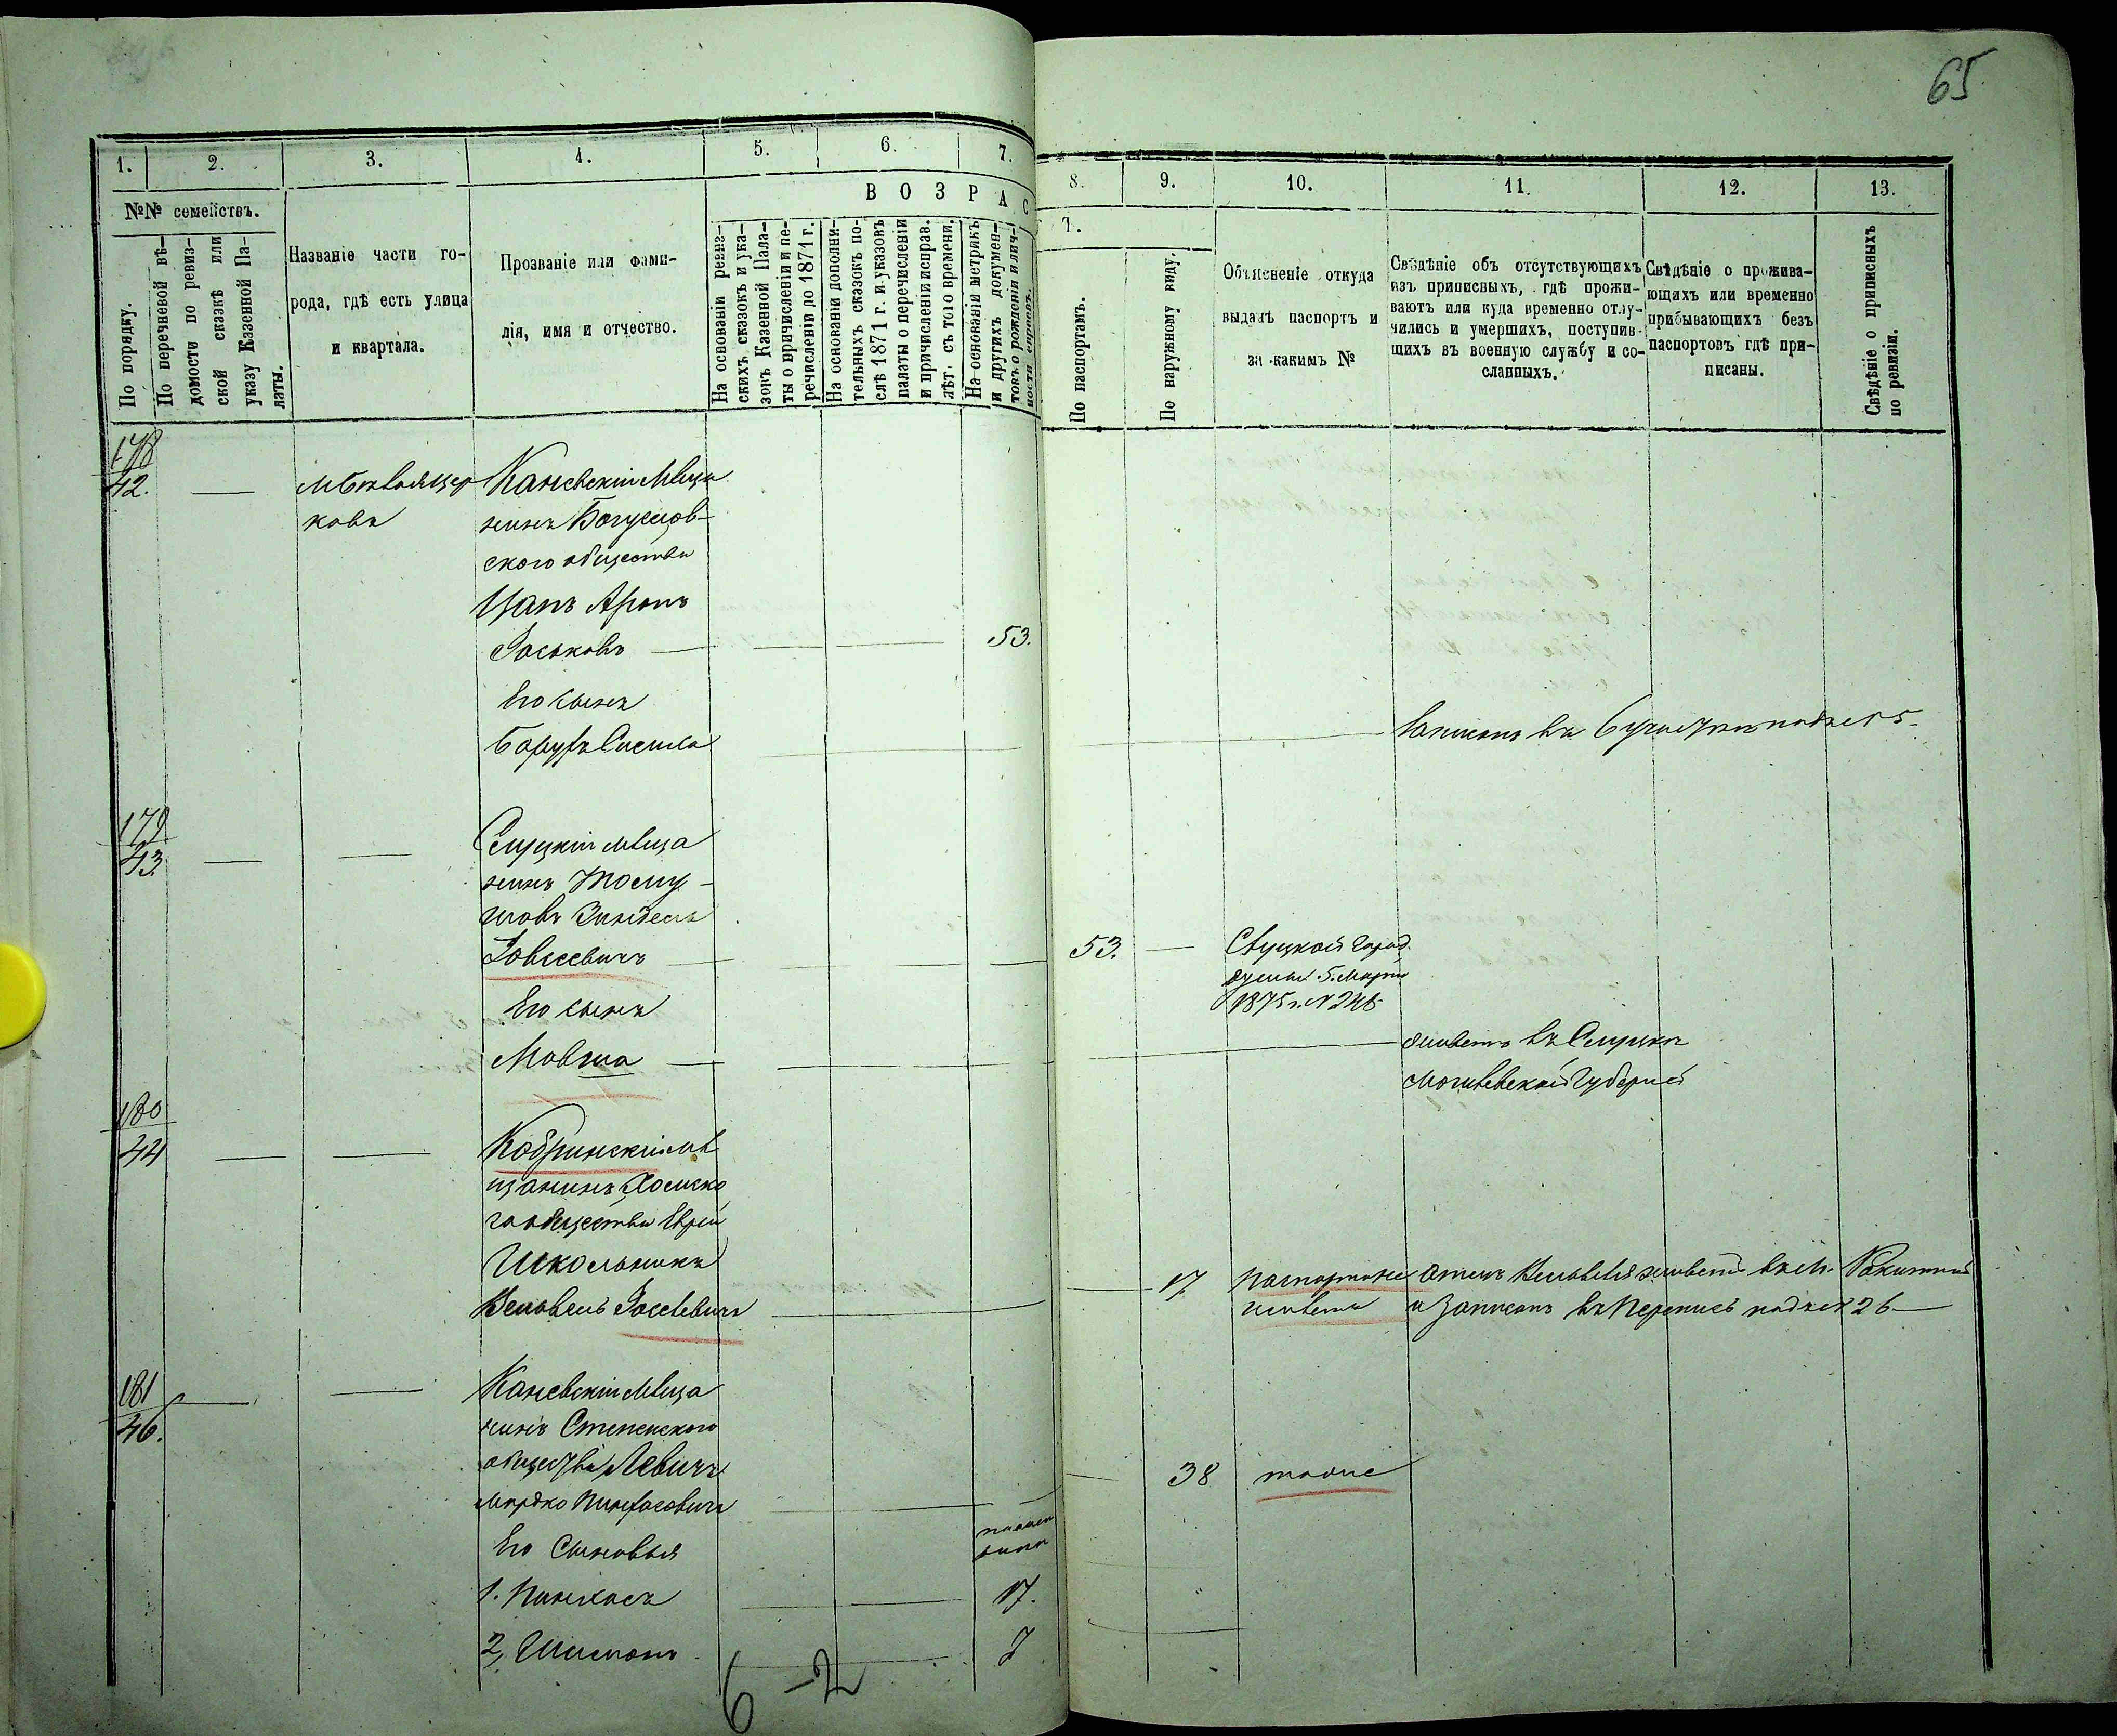 65
1.
2.
3.
4.
5.
6.
7.
8.
9.
10.
11.
12.
13.
№№ семействъ.
По порядку.
По перечневой вѣ-
домости по ревиз-
ской сказкѣ или
указу Казенной Па-
латы.
Названіе части го-
рода, гдѣ есть улица
и квартала.
Прозваніе или фами-
лія, имя и отчество.
ВОЗРАС
Т.
На основаніи ревиз-
скихъ сказокъ и ука-
зовъ Казенной Пала-
ты о причисленіи и пе-
речисленіи до 1871 г.
На основаніи дополни-
тельныхъ сказокъ по-
слѣ 1871 г. и указовъ
палаты о перечисленіи
и причисленіи исправ.
лѣт. съ того времени.
На основаніи метрикъ
и другихъ докумен-
товъ о рожденіи и лич-
ности евреевъ.
По паспортамъ.
По наружному виду.
Объясненіе откуда
выданъ паспортъ и
за какимъ №
Свѣдѣніе объ отсутствующихъ
изъ приписныхъ, гдѣ прожи-
ваютъ или куда временно отлу-
чились и умершихъ, поступив-
шихъ въ военную службу и со-
сланныхъ.
Свѣдѣніе о прожива-
ющихъ или временно
прибывающихъ безъ
паспортовъ гдѣ при-
писаны.
Свѣдѣніе о приписныхъ
по ревизіи.
178
42.
Каневскій Мѣща
нинъ Богуслов-
ского общества
Цапъ Аронъ
Іоськовъ 53.
Его сынъ
Борухъ Сисила
Записанъ въ подъ № 5.
179
43.
Слуцкій мѣща
нинъ
шовъ Зиндель
Іовсеевичъ 53. Слуцкой Город
думы 5. Марта
1875 г. № 246
Его сынъ
Мовша живетъ въ Слуцкѣ
Могилевской Губерніи
180
44
Кобринскій мѣ
щанинъ Хомско
го общества Еврей
Школьникъ
Вельвель Іосевевичъ 17 Паспорта не
имѣетъ
Отецъ Вельвеля живетъ въ м. Ракитной
и записанъ въ Перепись подъ № 26
181
46.
Каневскій Мѣща
нинъ Степенского
общества Левичъ
Мордко Пинхасовичъ 38 тоже
Его Сыновья
1. Пинхасъ 17.
2, Шимонъ 7
6 - 2